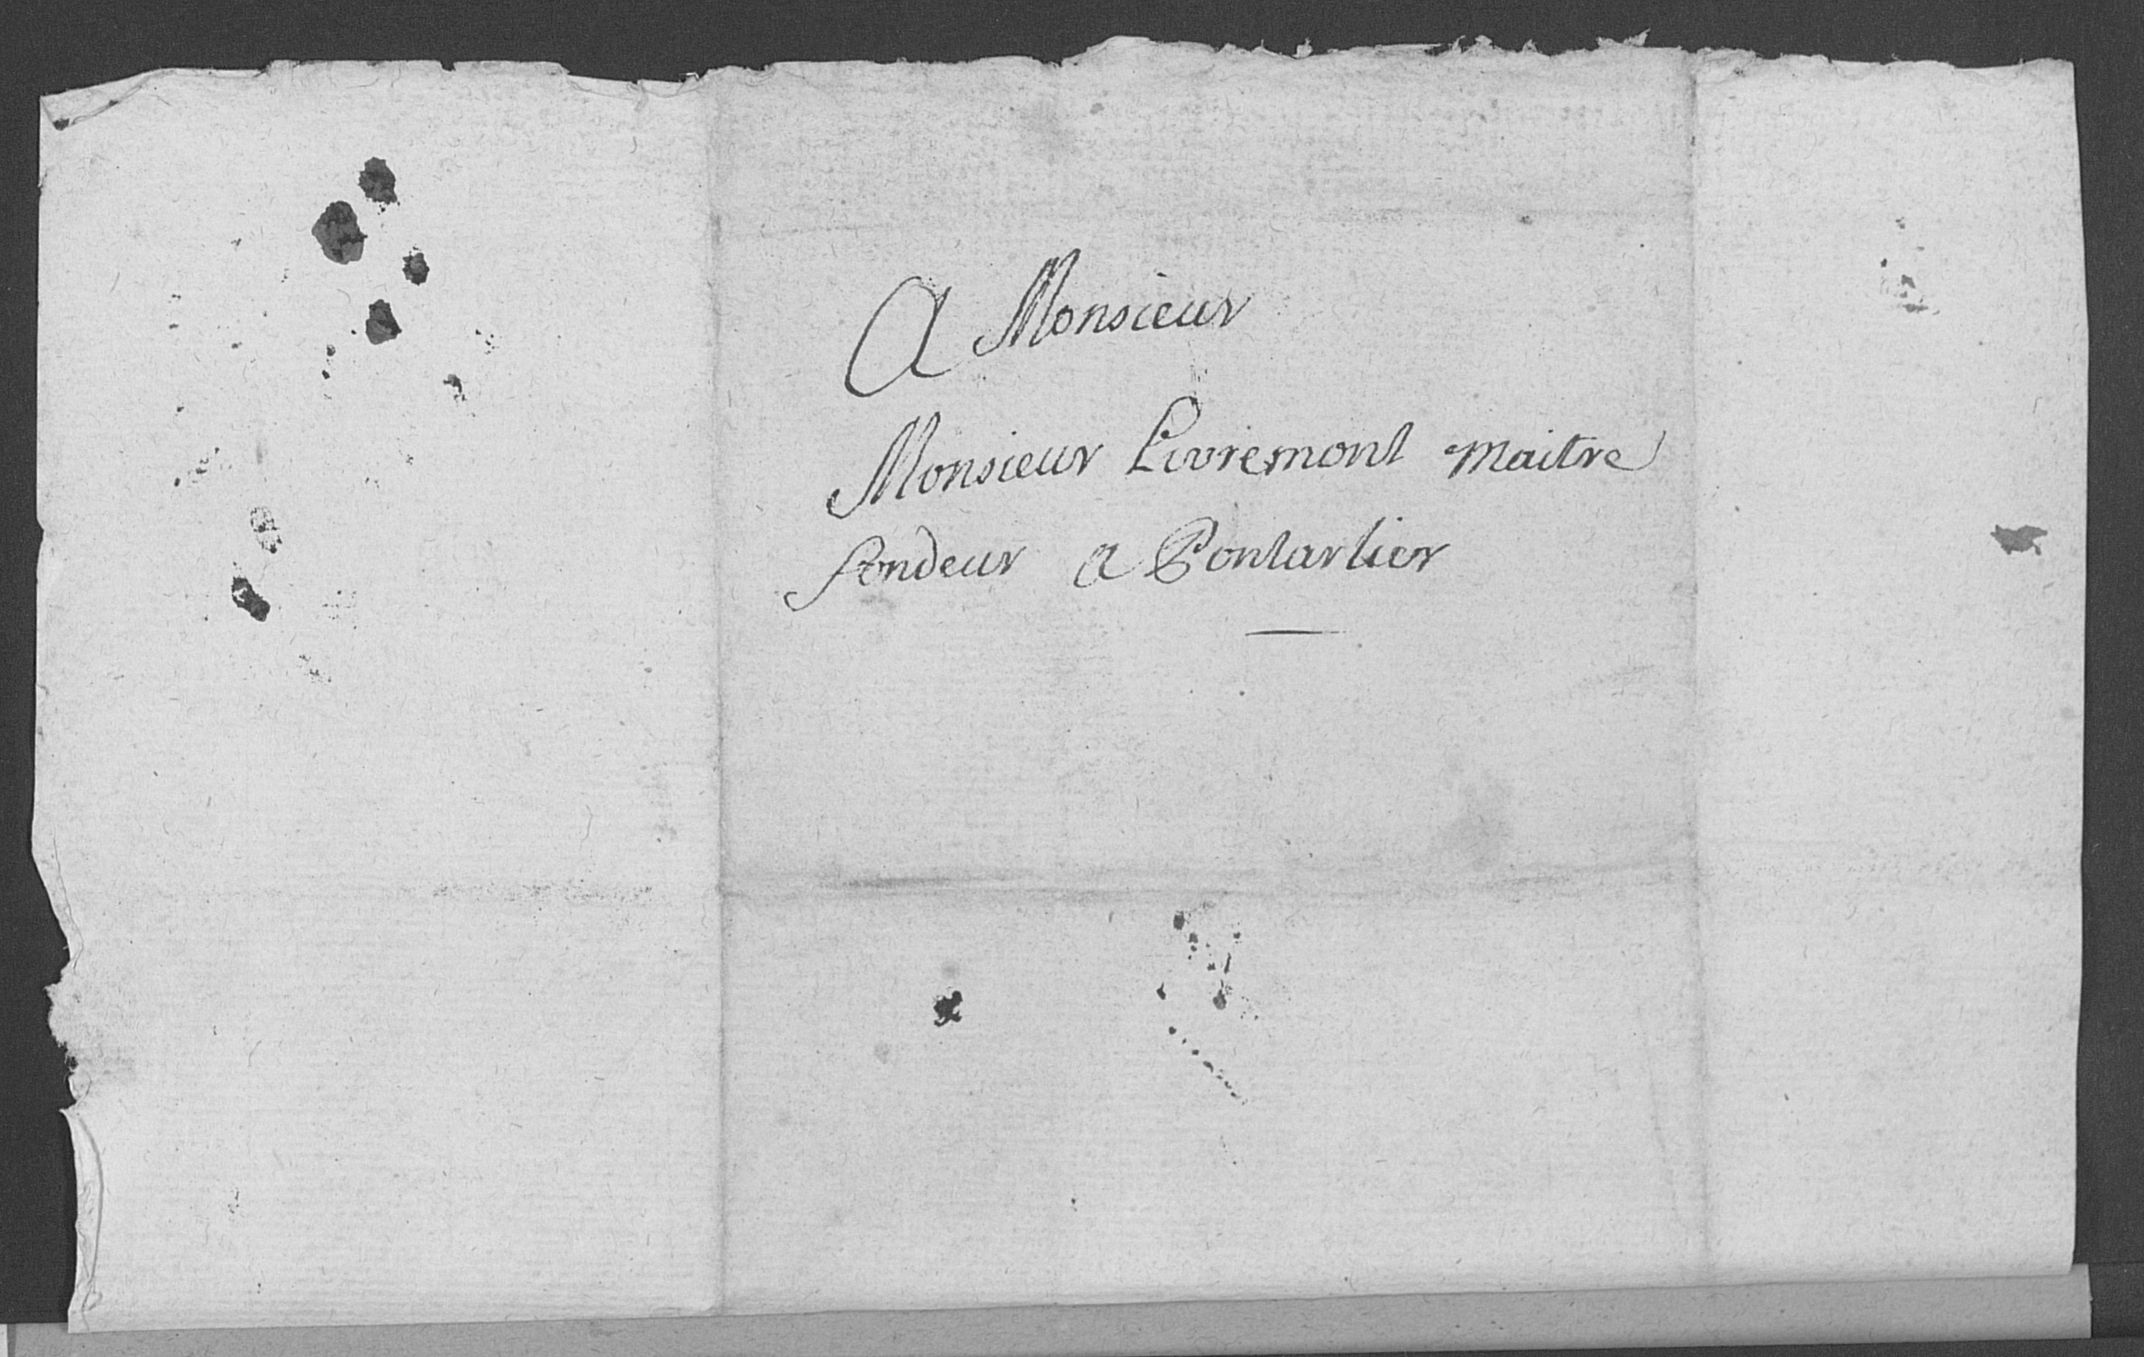 A Monsieur
Monsieur Livremont maitre
fondeur a Pontarlier